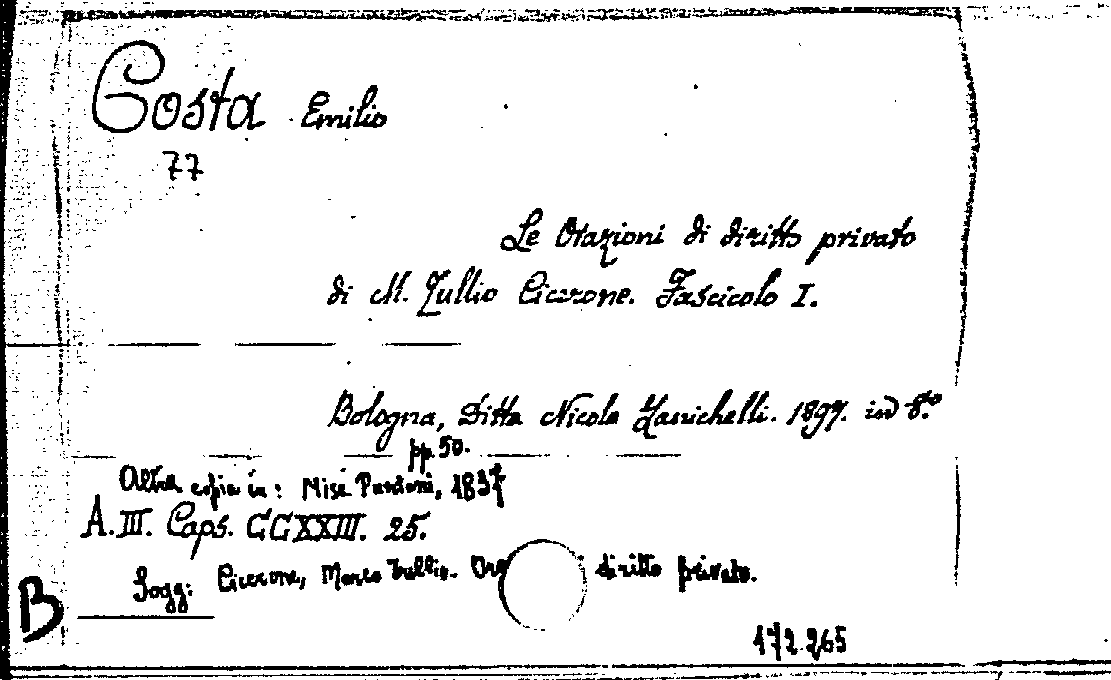 Costa Emilio
77
Le Orazioni di diritto privato
di M. Tullio Cicerone. Fascicolo I.
Bologna, Ditta Nicola Zanichelli. 1897. in 8.º
pp. 50.
Altra copia in: Misc.
A. III. Caps. CCXXIII. 25.
Sogg: Cicerone, Marco Tullio. diritto privato.
B
172.265